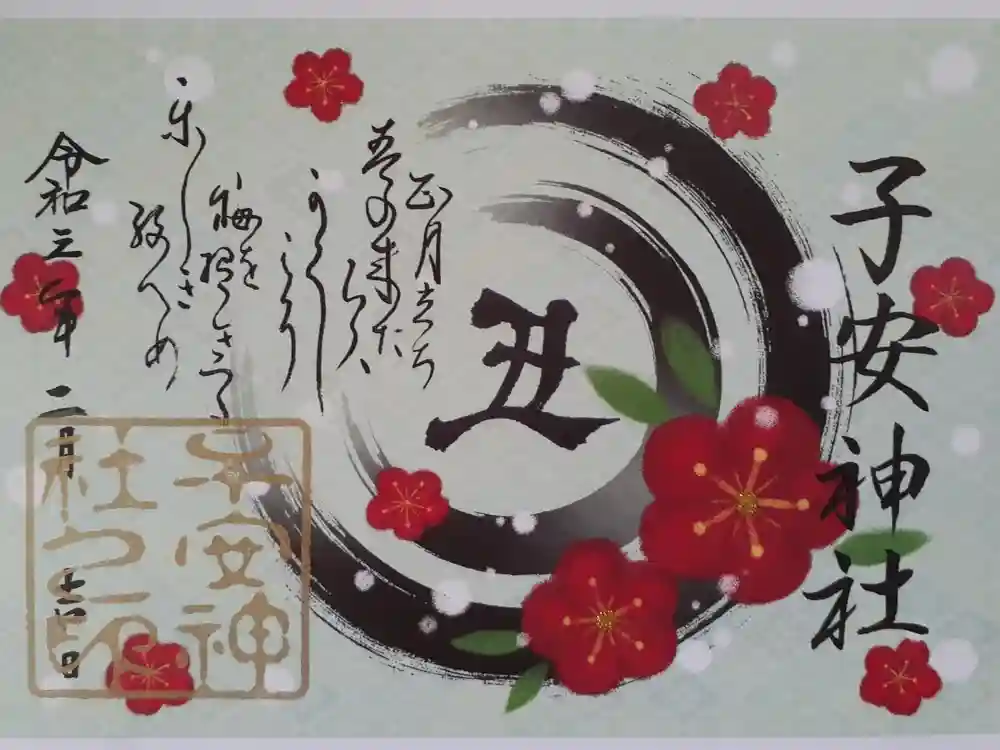 子安神社
丑
正月立ち
春の来た
らば
かくし
こそ
梅を招きつつ
楽しき
終へめ
令和三年
子安神
社之印